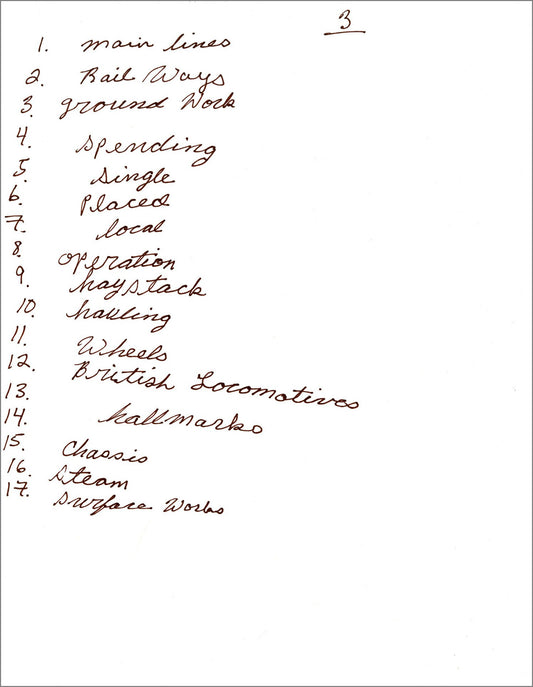 3
1. main lines
2. Rail Ways
3. ground Work
4. spending
5. single
6. Placed
7. local
8. operation
9. haystack
10. hauling
11. Wheels
12. British Locomotives
13.
14. hallmarks
15. Chassis
16. Steam
17. Surface Works